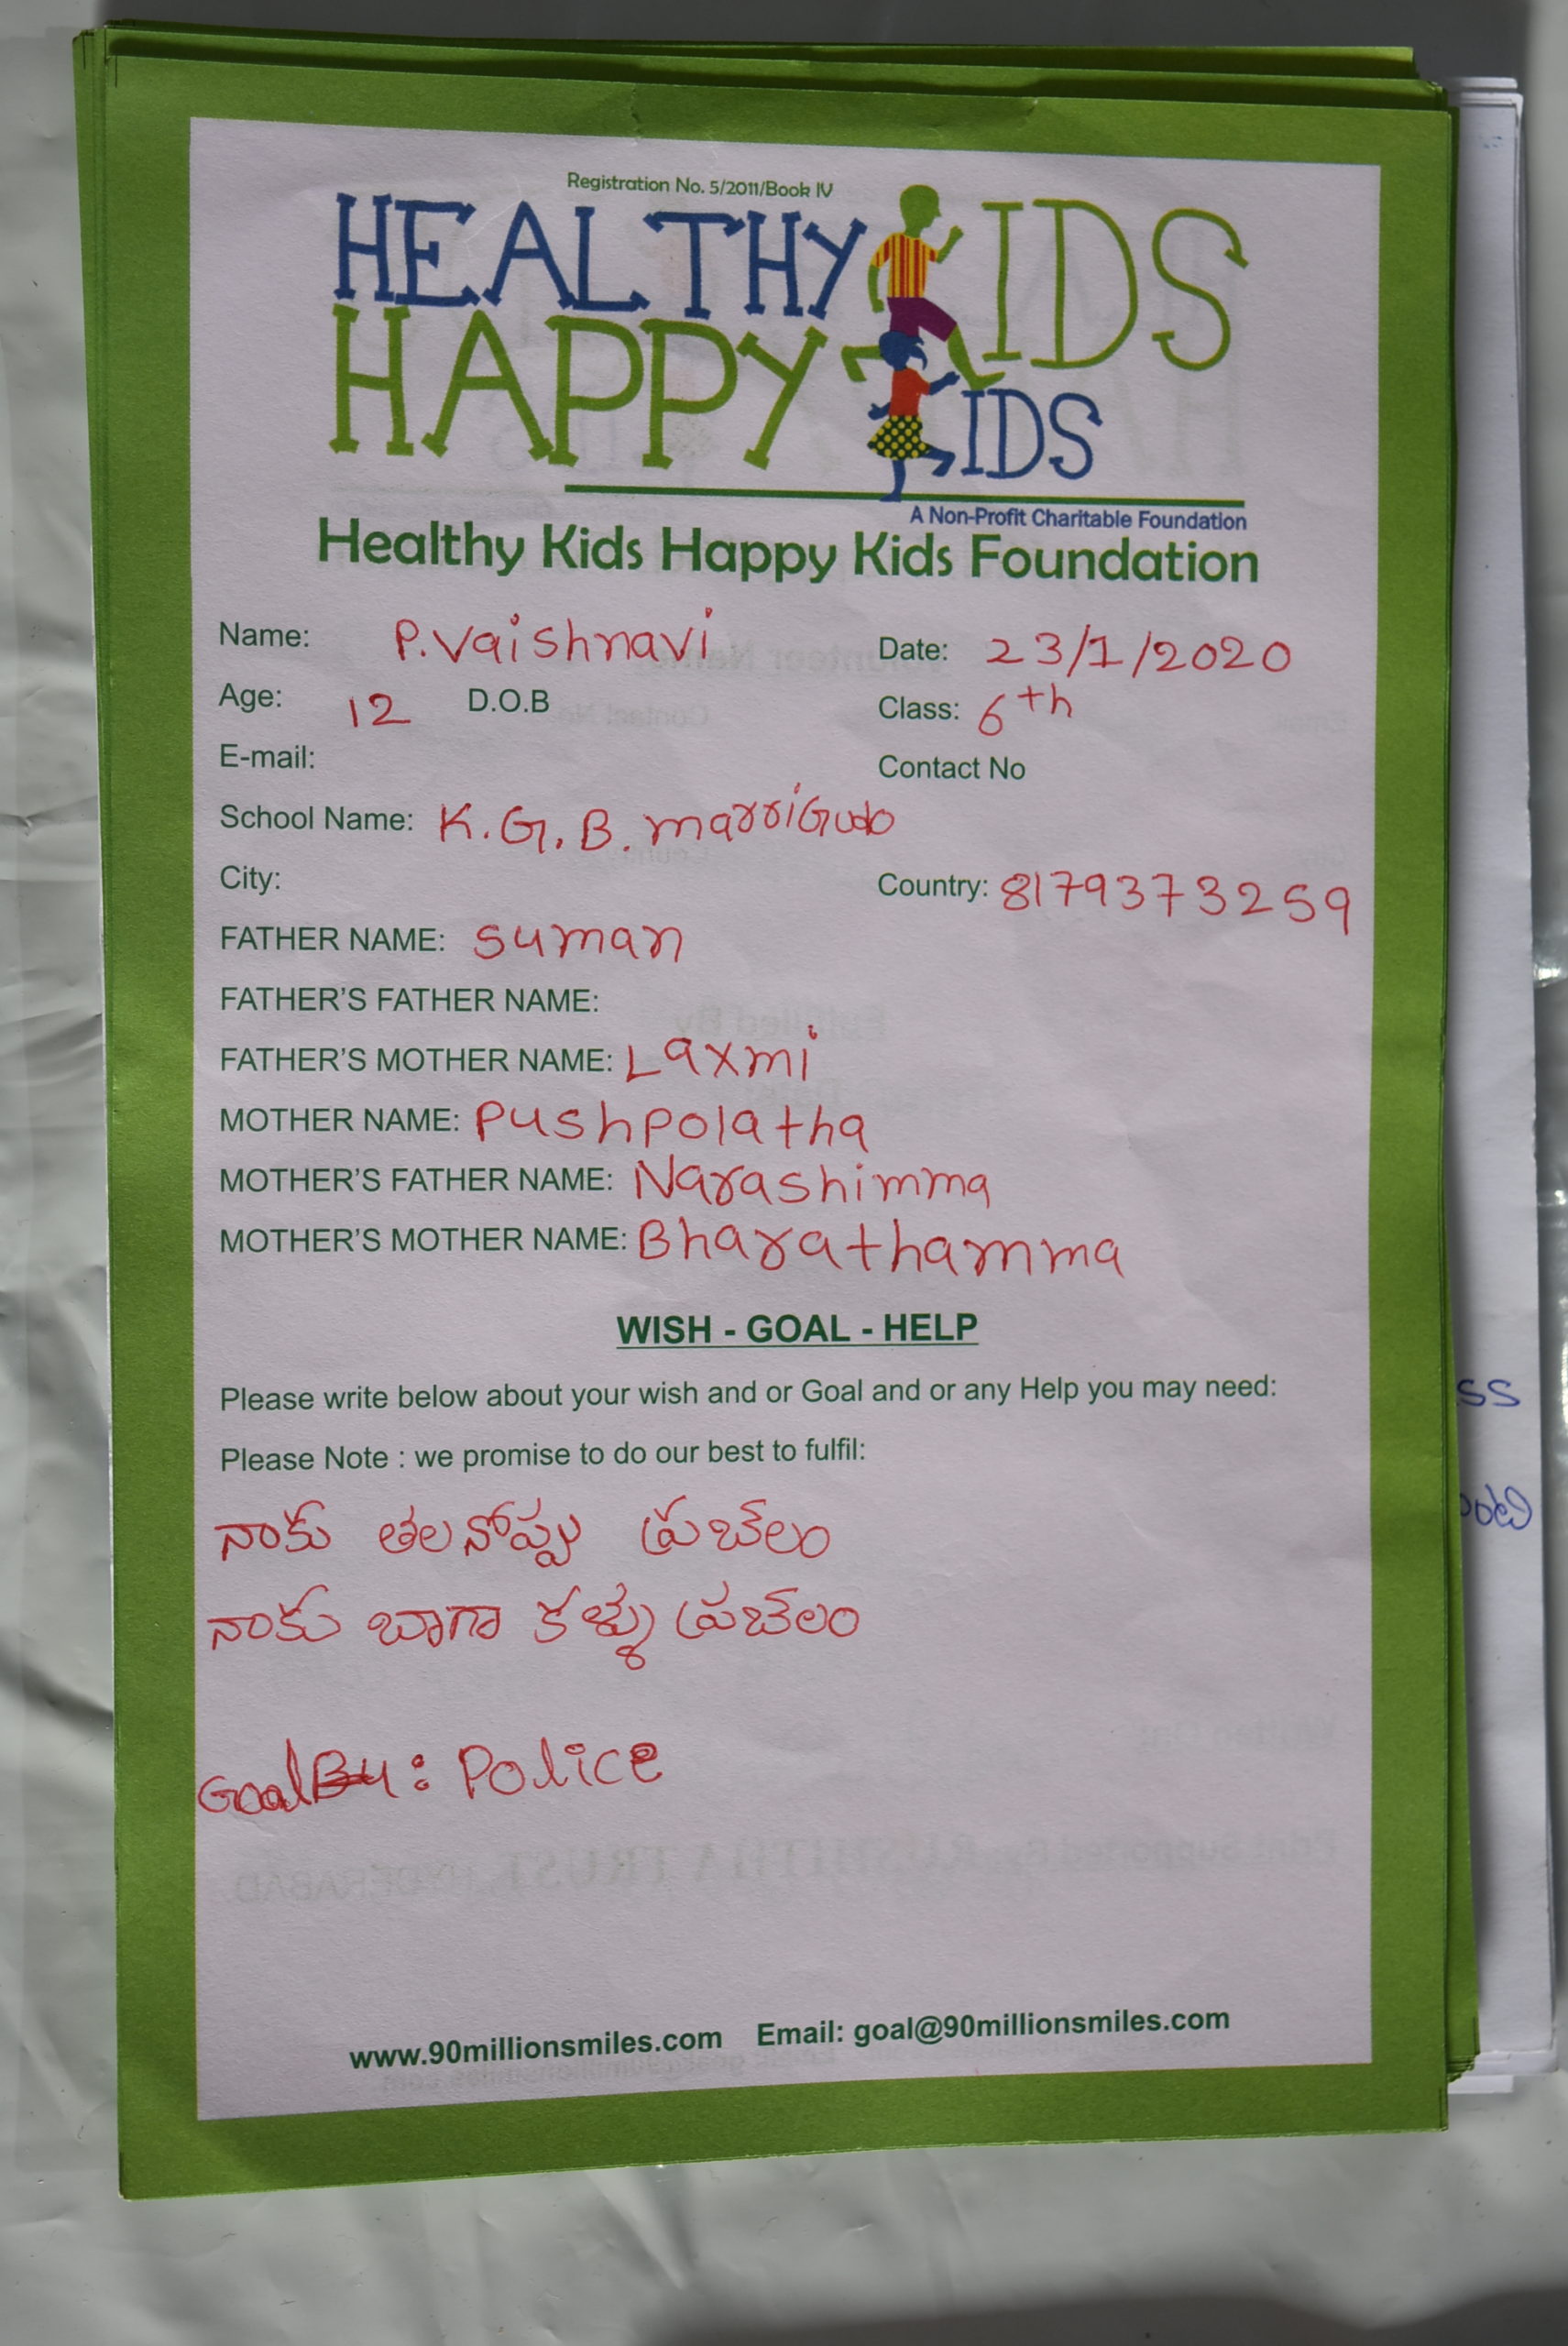 Registration No. 5/2011/Book IV
HEALTHY KIDS
HAPPY KIDS
A Non-Profit Charitable Foundation
Healthy Kids Happy Kids Foundation
Name: P.Vaishnavi Date: 23/1/2020
Age: 12 D.O.B Class: 6th
E-mail: Contact No
School Name: K.G.B. marriGudo
City: Country: 8179373259
FATHER NAME: suman
FATHER'S FATHER NAME:
FATHER'S MOTHER NAME: Laxmi
MOTHER NAME: Pushpolatha
MOTHER'S FATHER NAME: Narashimma
MOTHER'S MOTHER NAME: Bharathamma
WISH - GOAL - HELP
Please write below about your wish and or Goal and or any Help you may need:
Please Note : we promise to do our best to fulfil:
నాకు తలనోప్పు ప్రబేలం
నాకు బాగా కళ్ళు ప్రబేలం
Goal : Police
www.90millionsmiles.com Email: goal@90millionsmiles.com